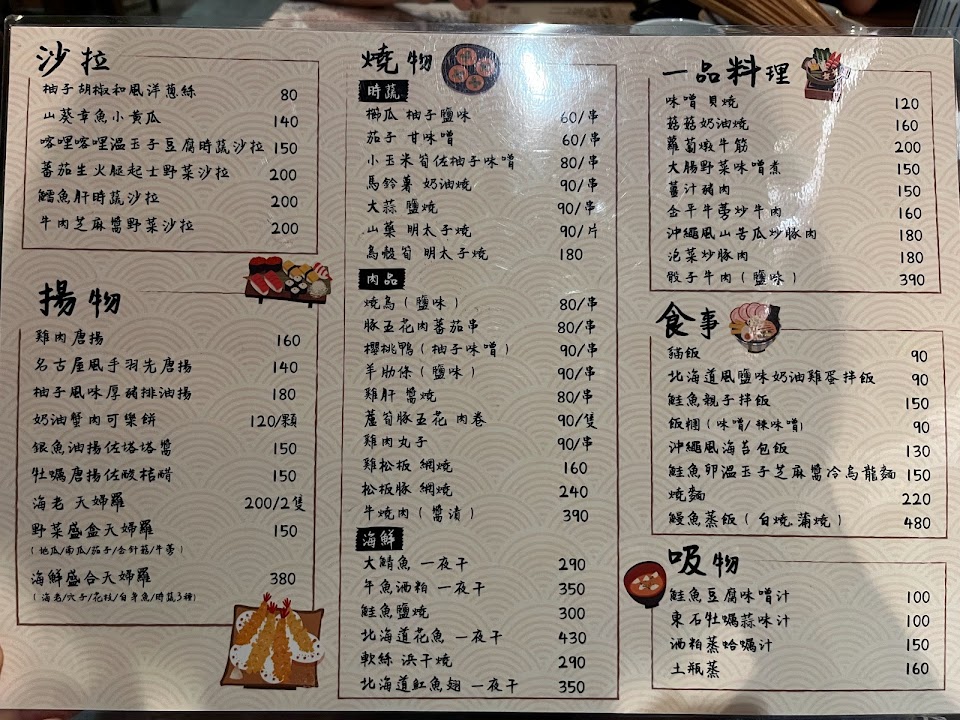 沙拉
柚子胡椒和風洋蔥絲 80
山葵章魚小黃瓜 140
喀哩喀哩溫玉子豆腐時蔬沙拉 150
蕃茄生火腿起士野菜沙拉 200
鱈魚肝時蔬沙拉 200
牛肉芝麻醬野菜沙拉 200
揚物
雞肉唐揚 160
名古屋風手羽先唐揚 140
柚子風味厚豬排油揚 180
奶油蟹肉可樂餅 120/顆
銀魚油揚佐塔塔醬 150
牡蠣唐揚佐酸桔醋 150
海老 天婦羅 200/2隻
野菜盛盒天婦羅 150
(地瓜/南瓜/茄子/金針菇/牛蒡)
海鮮盛合天婦羅 380
(海老/穴子/花枝/白身魚/時蔬3種)
燒物
時蔬
櫛瓜 柚子鹽味 60/串
茄子 甘味噌 60/串
小玉米筍佐柚子味噌 80/串
馬鈴薯 奶油燒 90/串
大蒜 鹽燒 90/串
山藥 明太子燒 90/片
烏殼筍 明太子燒 180
肉品
燒鳥(鹽味) 80/串
豚五花肉蕃茄串 80/串
櫻桃鴨(柚子味噌) 90/串
羊肋條(鹽味) 90/串
雞肝 醬燒 80/串
蘆筍豚五花 肉卷 90/隻
雞肉丸子 90/串
雞松板 網燒 160
松板豚 網燒 240
牛燒肉(醬漬) 390
海鮮
大鯖魚 一夜干 290
午魚酒粕 一夜干 350
鮭魚鹽燒 300
北海道花魚 一夜干 430
軟絲 浜干燒 290
北海道魟魚翅 一夜干 350
一品料理
味噌貝燒 120
菇菇奶油燒 160
蘿蔔燉牛筋 200
大腸野菜味噌煮 150
薑汁豬肉 150
金平牛蒡炒牛肉 160
沖繩風山苦瓜炒豚肉 180
泡菜炒豚肉 180
骰子牛肉(鹽味) 390
食事
貓飯 90
北海道風鹽味奶油雞蛋拌飯 90
鮭魚親子拌飯 150
飯糰(味噌/辣味噌) 90
沖繩風海苔包飯 130
鮭魚卵溫玉子芝麻醬冷烏龍麵 150
燒麵 220
鰻魚蒸飯(白燒.蒲燒) 480
吸物
鮭魚豆腐味噌汁 100
東石牡蠣蒜味汁 100
酒粕蒸蛤蠣汁 150
土瓶蒸 160